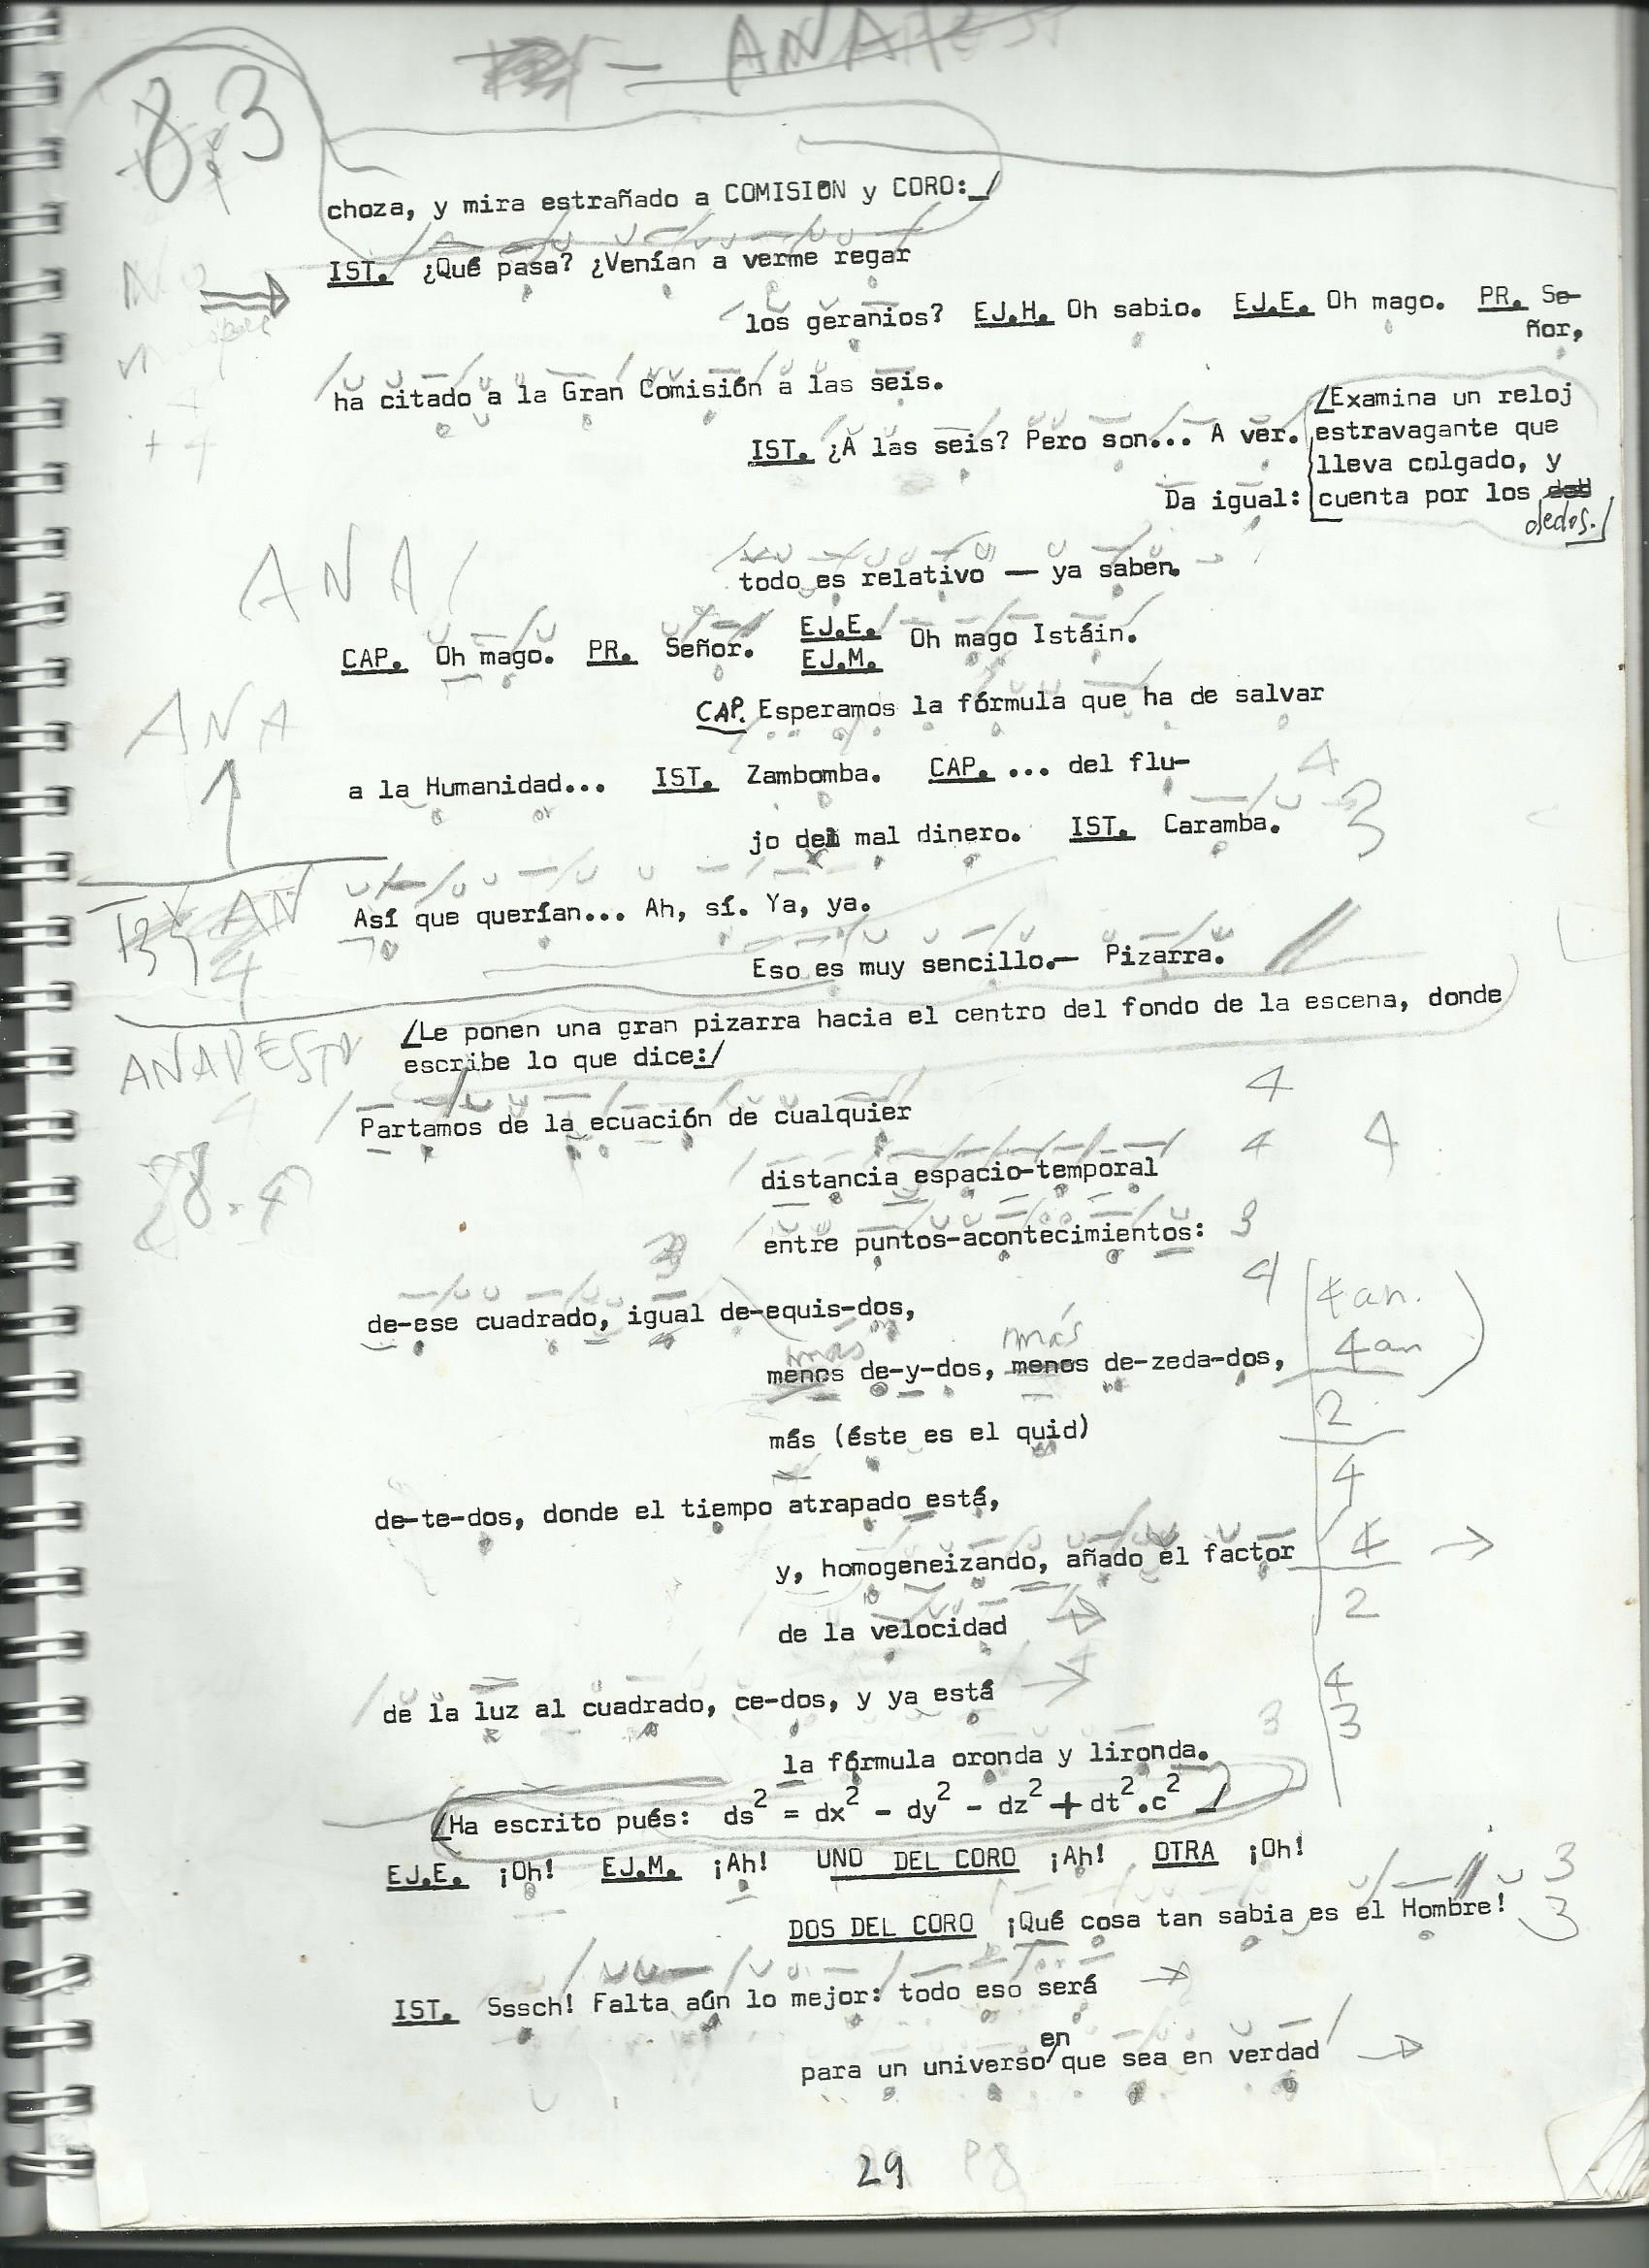 - ANAPEST
8.3
choza, y mira estrañado a COMISION y CORO:_/
IST. ¿Qué pasa? ¿Venían a verme regar
los geranios? EJ.H. Oh sabio. EJ.E. Oh mago. PR. Se-
ñor,
ha citado a la Gran Comisión a las seis.
+4
IST. ¿A las seis? Pero son... A ver.
/Examina un reloj
estravagante que
lleva colgado, y
Da igual:
cuenta por los
dedos./
ANA
todo es relativo — ya saben.
CAP. Oh mago. PR. Señor. EJ.E. Oh mago Istáin.
EJ.M.
ANA
CAP. Esperamos la fórmula que ha de salvar
a la Humanidad... IST. Zambomba. CAP. ... del flu-
4
jo del mal dinero. IST. Caramba.
3
AN
4
Así que querían... Ah, sí. Ya, ya.
Eso es muy sencillo.— Pizarra.
/Le ponen una gran pizarra hacia el centro del fondo de la escena, donde
escribe lo que dice:/
ANAPESTO
8.4
Partamos de la ecuación de cualquier
4
distancia espacio-temporal
4 4
entre puntos-acontecimientos:
3
de-ese cuadrado, igual de-equis-dos,
4 4 an.
más más
menos de-y-dos, menos de-zeda-dos,
4 an
más (éste es el quid)
2
de-te-dos, donde el tiempo atrapado está,
4
y, homogeneizando, añado el factor
4
de la velocidad
2
de la luz al cuadrado, ce-dos, y ya está
4
la fórmula oronda y lironda.
3 3
/Ha escrito pués: ds² = dx² - dy² - dz² + dt².c² _/
EJ.E. ¡Oh! EJ.M. ¡Ah! UNO DEL CORO ¡Ah! OTRA ¡Oh!
3
DOS DEL CORO ¡Qué cosa tan sabia es el Hombre!
3
IST. Sssch! Falta aún lo mejor: todo eso será
en
para un universo/que sea en verdad
29